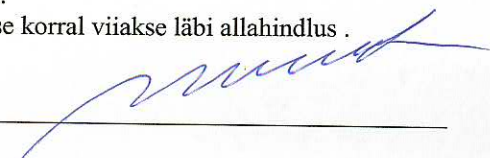 se korral viiakse läbi allahindlus .